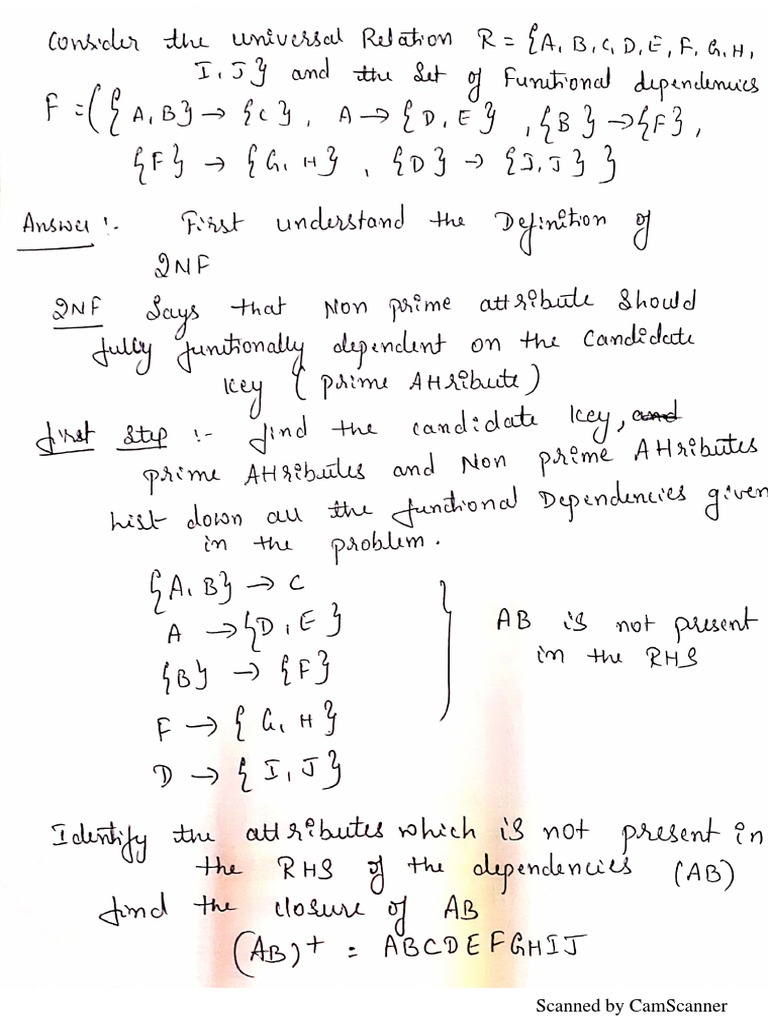 Consider the universal Relation R = {A, B, C, D, E, F, G, H,
I, J} and the set of Functional dependencies
F = ({A, B} → {C}, A → {D, E}, {B} → {F},
{F} → {G, H}, {D} → {I, J} }
Answer :- First understand the Definition of
2NF
2NF Says that Non prime attribute should
fully functionally dependent on the candidate
key (prime Attribute)
First Step :- find the candidate key, and
prime Attributes and Non prime Attributes
List down all the functional Dependencies given
in the problem.
{A, B} → C
A → {D, E}
{B} → {F}
F → {G, H}
D → {I, J}
AB is not present
in the RHS
Identify the attributes which is not present in
the RHS of the dependencies (AB)
find the closure of AB
(AB)+ = ABCDEFGHIJ
Scanned by CamScanner